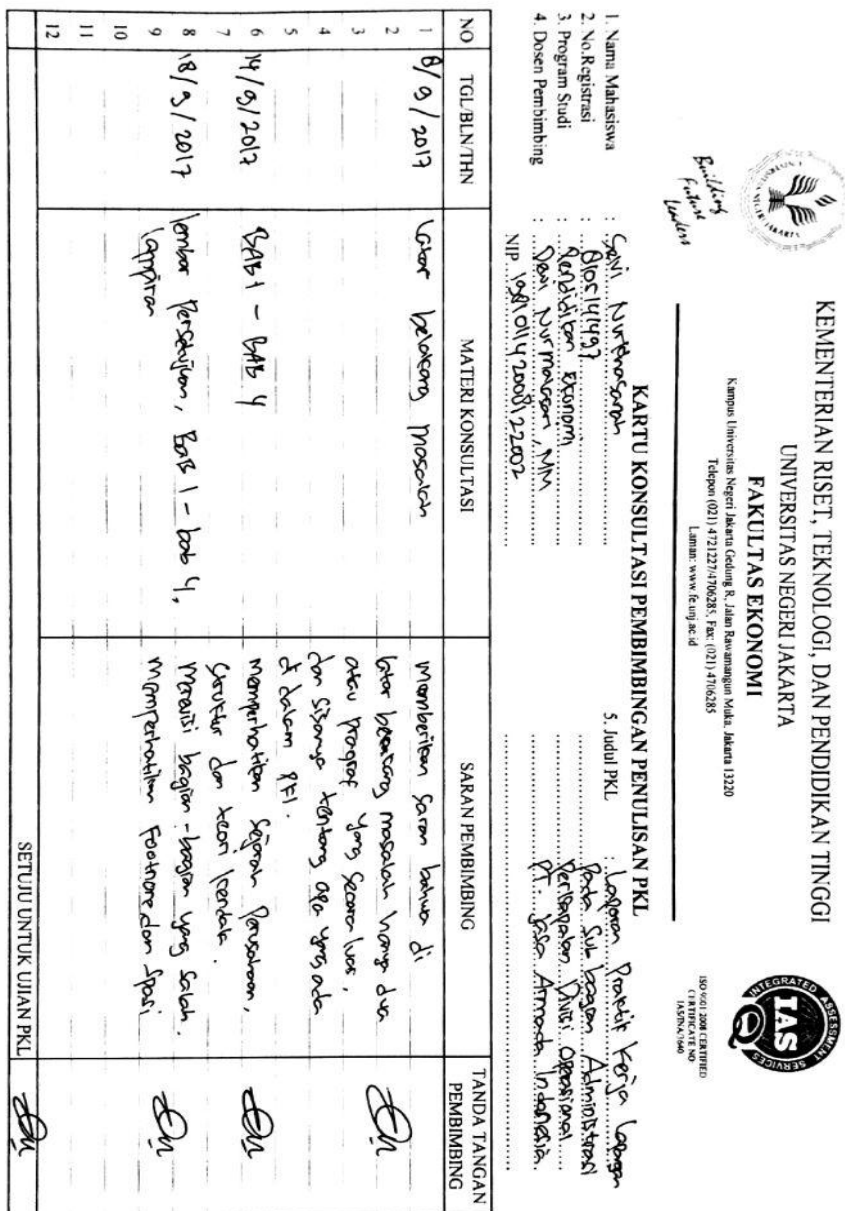 KEMENTERIAN RISET, TEKNOLOGI, DAN PENDIDIKAN TINGGI
UNIVERSITAS NEGERI JAKARTA
FAKULTAS EKONOMI
Kampus Universitas Negeri Jakarta Gedung R, Jalan Rawamangun Muka, Jakarta 13220
Telepon (021) 4721227/4706285, Fax: (021) 4706285
Laman: www.fe.unj.ac.id
Building
Future
Leaders
INTEGRATED ASSESSMENT SERVICES
IAS
ISO 9001:2008 CERTIFIED
CERTIFICATE NO
IAS/INA/1640
KARTU KONSULTASI PEMBIMBINGAN PENULISAN PKL
1. Nama Mahasiswa : Selvi Nurkhasanah
2. No.Registrasi : 8105141497
3. Program Studi : Pendidikan Ekonomi
4. Dosen Pembimbing : Dewi Nurmalasari, MM
NIP. 198101142008122002
5. Judul PKL : Laporan Praktik Kerja Lapangan
Pada Sub bagian Administrasi
Perkapalan Divisi Operasional
PT. Jasa Armada Indonesia.
NO TGL/BLN/THN MATERI KONSULTASI SARAN PEMBIMBING TANDA TANGAN PEMBIMBING
1 8/9/2017 Latar belakang masalah memberikan saran bahwa di
2 latar belakang masalah hanya dua
3 atau pragraf yang secara luas,
4 dan sisanya tentang apa yang ada
5 di dalam PKL.
6 14/9/2017 BAB 1 - BAB 4 memperhatikan Sejarah Perusahaan,
7 Struktur dan teori kendala.
8 18/9/2017 lembar Persetujuan, BAB 1 - bab 4, Merevisi bagian-bagian yang salah.
9 lampiran memperhatikan Footnone dan Spasi
10
11
12
SETUJU UNTUK UJIAN PKL